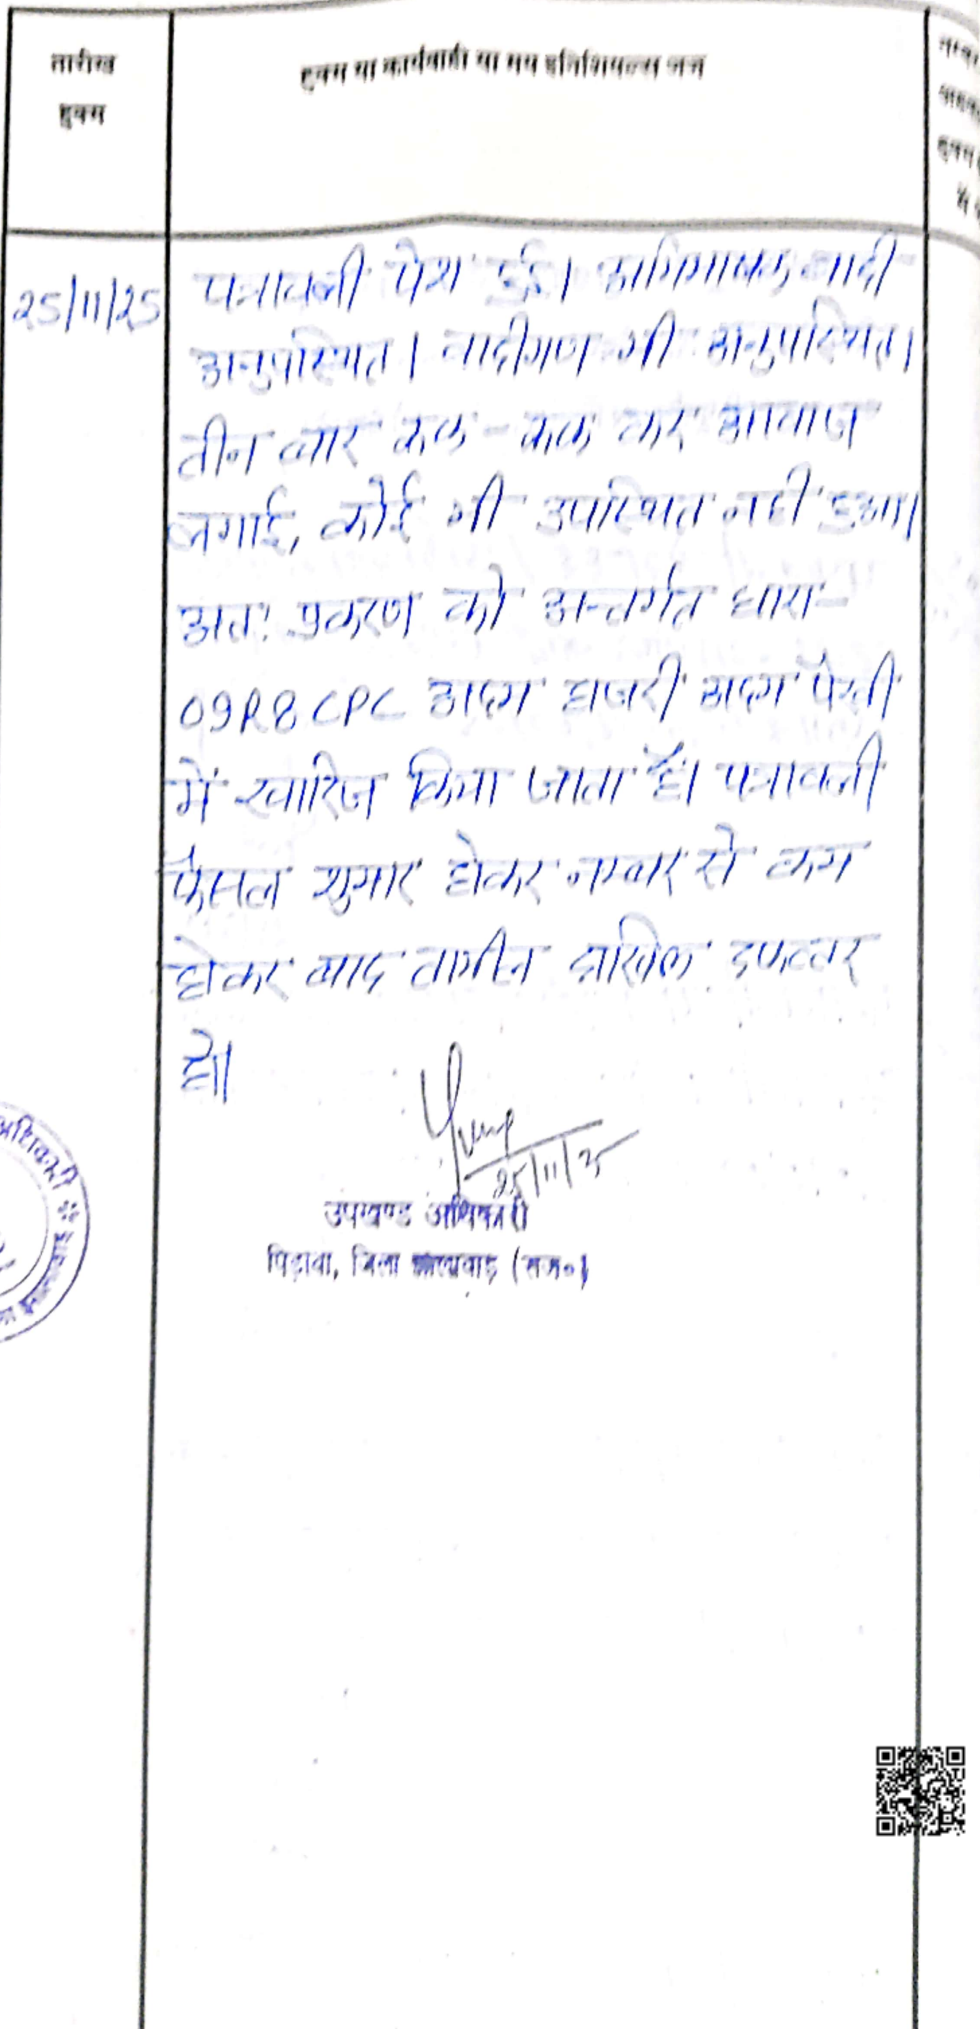 तारीख
हुक्म
हुक्म या कार्यवाही या मय इनिशियल्स जज
हुक्म
25/11/25
पत्रावली पेश हुई। अभिभाषक वादी
अनुपस्थित। वादीगण भी अनुपस्थित।
तीन बार रूक-रूक कर आवाज
लगाई, कोई भी उपस्थित नहीं हुआ।
अतः प्रकरण को अन्तर्गत धारा-
09R8 CPC अदम हाजरी अदम पैरवी
में खारिज किया जाता है। पत्रावली
फैसल शुमार होकर नम्बर से कम
होकर बाद तामील दाखिल दफ्तर
हो।
25/11/25
उपखण्ड अधिकारी
पिड़ावा, जिला झालावाड़ (राज०)
अधिकारी